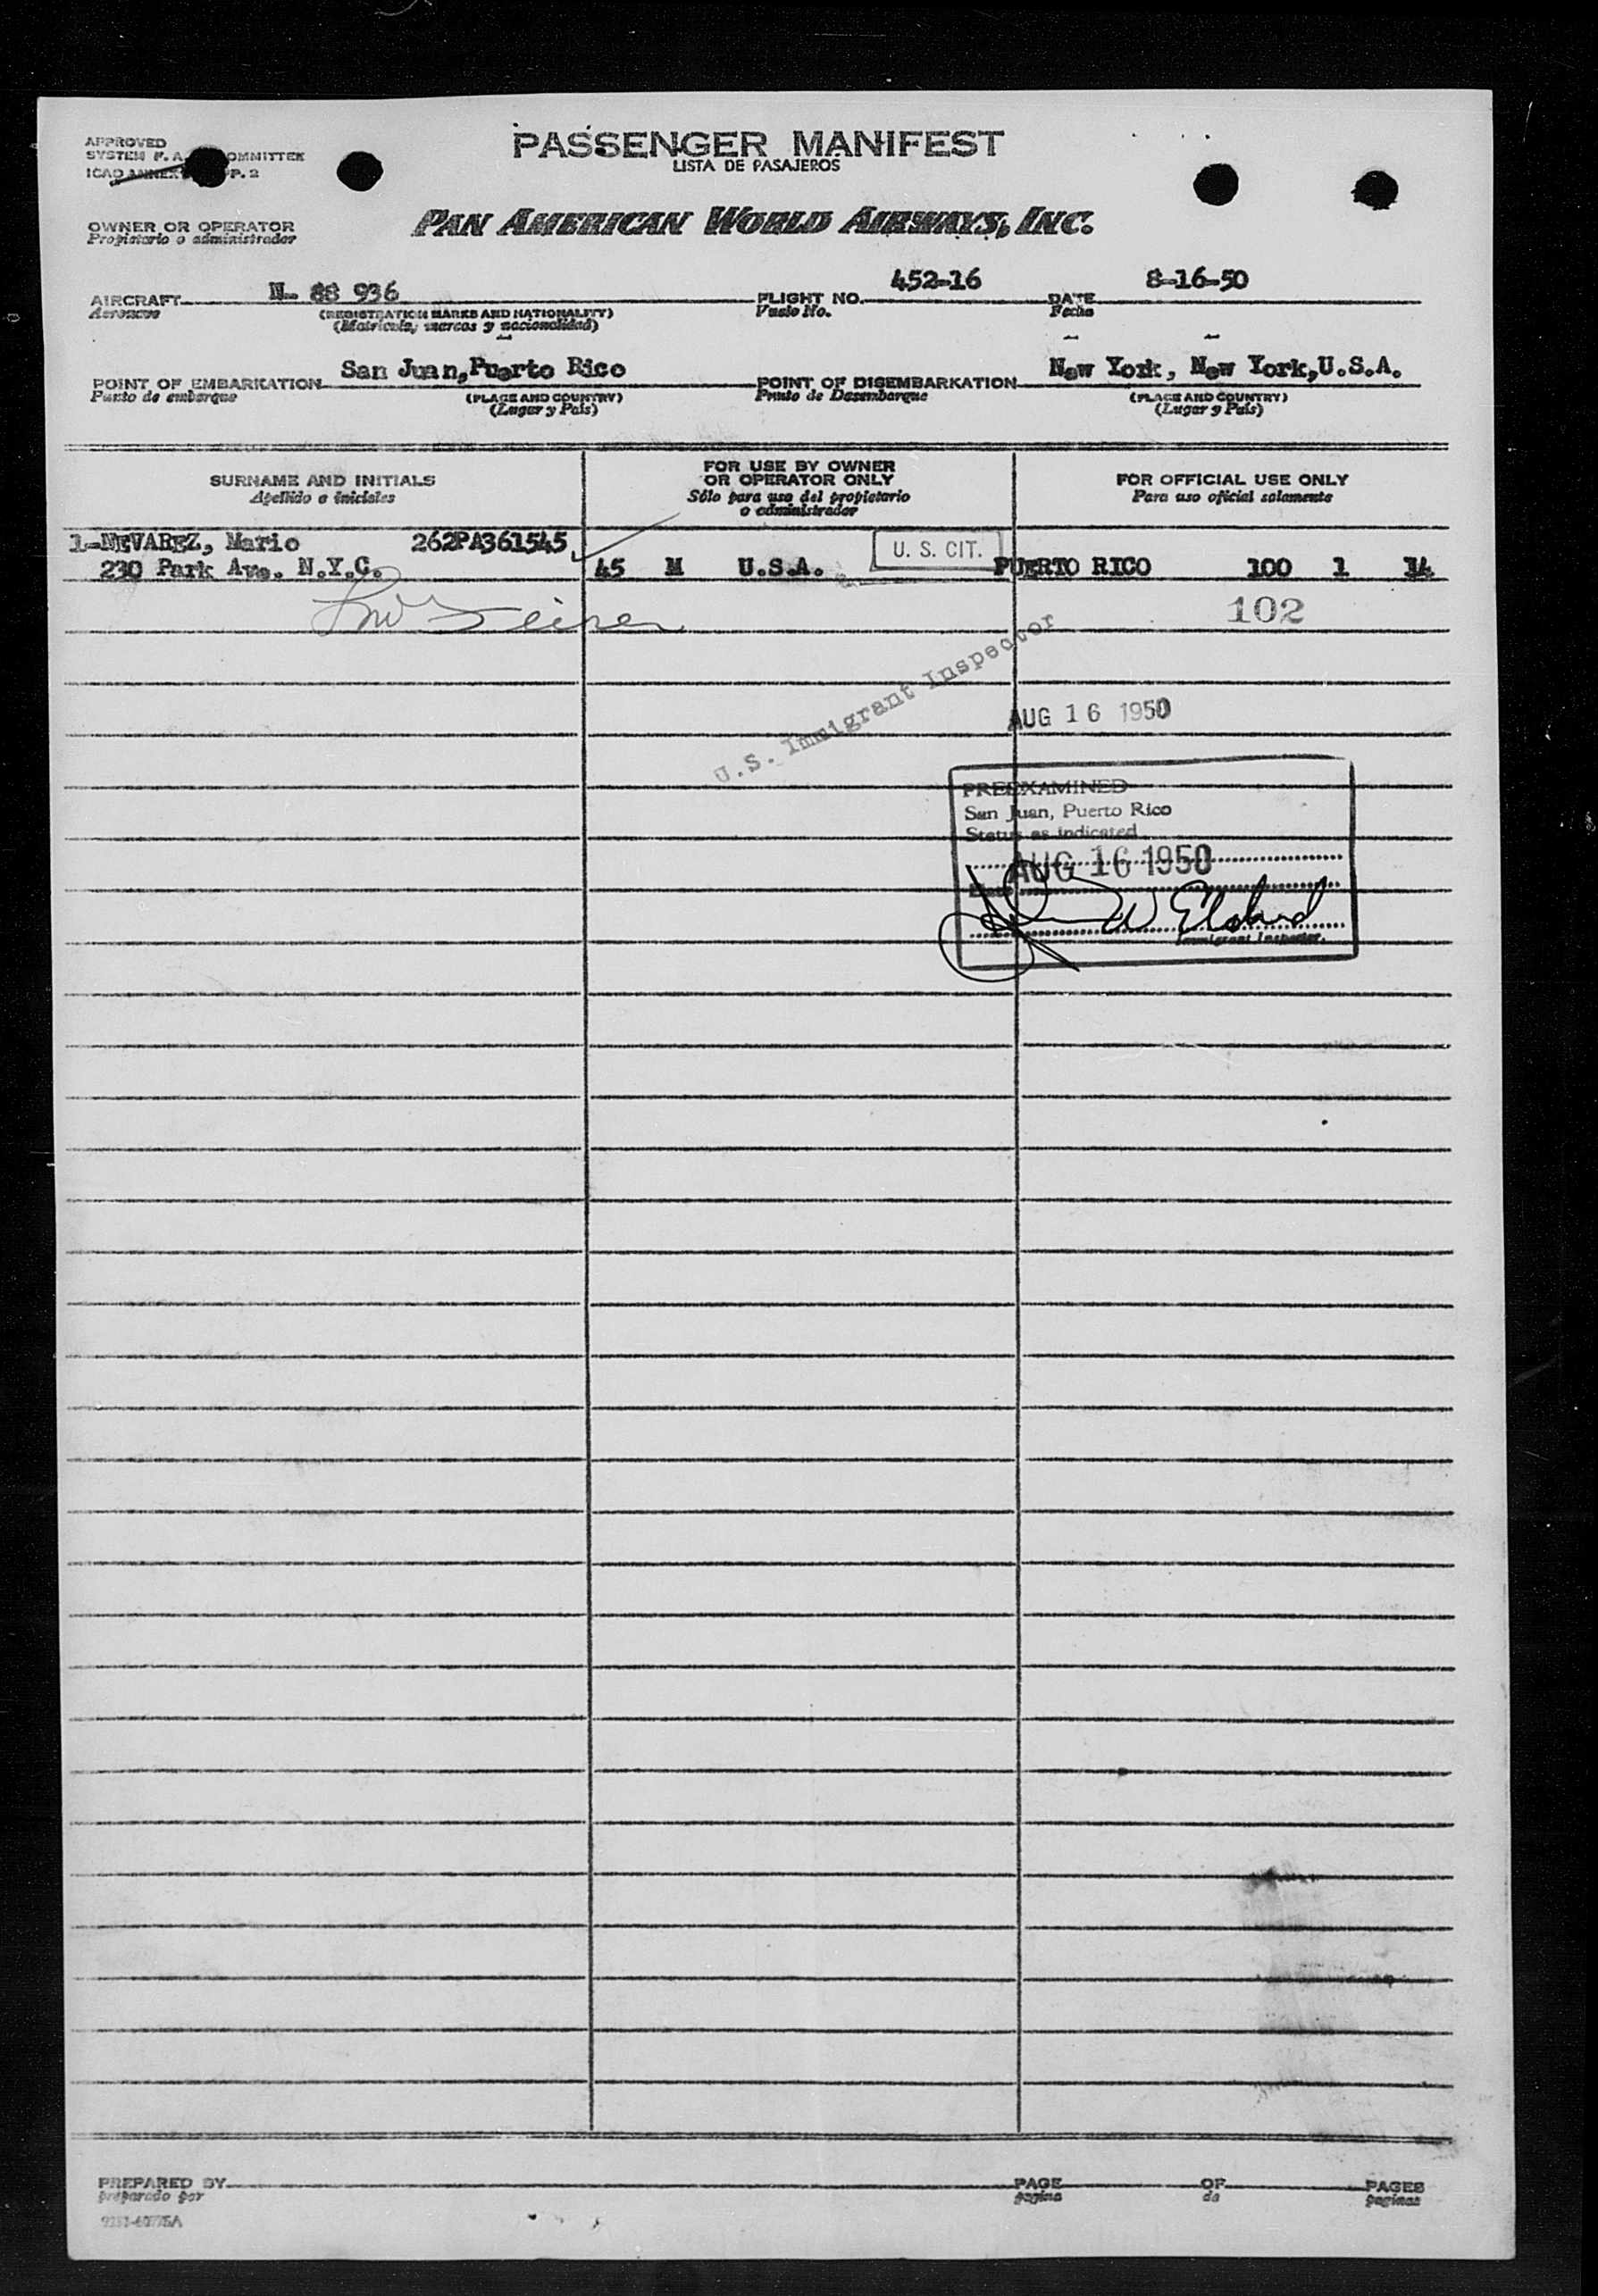 APPROVED
SYSTEM F. A. OMMITTEE
ICAO ANNEX P. 2
PASSENGER MANIFEST
LISTA DE PASAJEROS
OWNER OR OPERATOR
Propietario o administrador
PAN AMERICAN WORLD AIRWAYS, INC.
AIRCRAFT N- 88 936 FLIGHT NO. 452-16 DATE 8-16-50
Aeronave (REGISTRATION MARKS AND NATIONALITY) Vuelo No. Fecha
(Matricula, marcas y nacionalidad)
POINT OF EMBARKATION San Juan, Puerto Rico POINT OF DISEMBARKATION New York, New York, U.S.A.
Punto de embarque (PLACE AND COUNTRY) Punto de Desembarque (PLACE AND COUNTRY)
(Lugar y País) (Lugar y País)
SURNAME AND INITIALS
Apellido e iniciales
FOR USE BY OWNER
OR OPERATOR ONLY
Sólo para uso del propietario
o administrador
FOR OFFICIAL USE ONLY
Para uso oficial solamente
1-NEVAREZ, Mario 262PA361545
230 Park Ave. N.Y.C. 45 M U.S.A. U. S. CIT. PUERTO RICO 100 1 14
102
U.S. Immigrant Inspector
AUG 16 1950
PREEXAMINED
San Juan, Puerto Rico
Status as indicated
AUG 16 1950
Date
Immigrant Inspector.
PREPARED BY PAGE OF PAGES
preparado por pagina de paginas